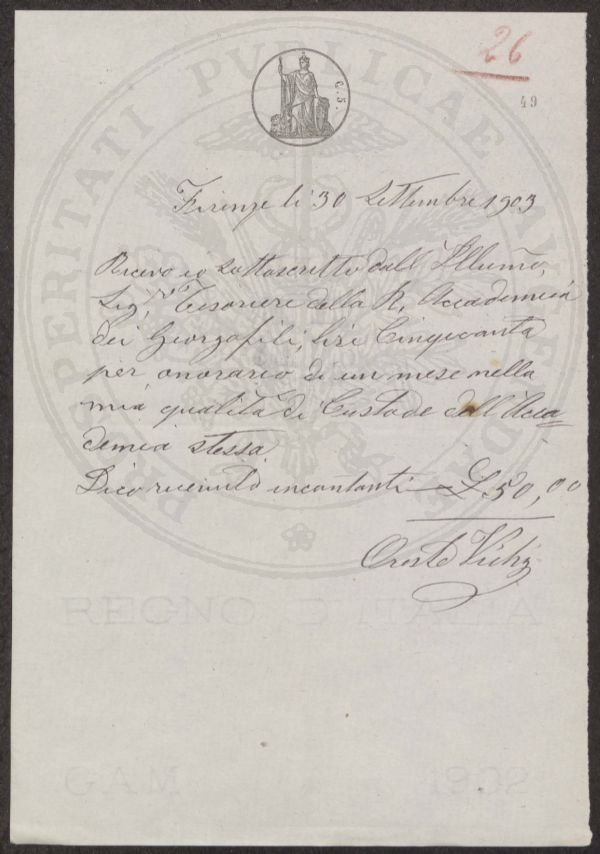 26
C. 5.
49
PROSPERITATI PUBLICAE AUGENDAE
Firenze li 30 Settembre 1903
Ricevo io sottoscritto dall' Illumo,
Sigre Tesoriere della R. Accademia
dei Georgofili, lire Cinquanta
per onorario di un mese nella
mia qualità di Custode dell'Acca=
demia stessa.
Dico ricevuto in contanti £ 50,00
Oreste Vichi
REGNO D'ITALIA
GAM 1902